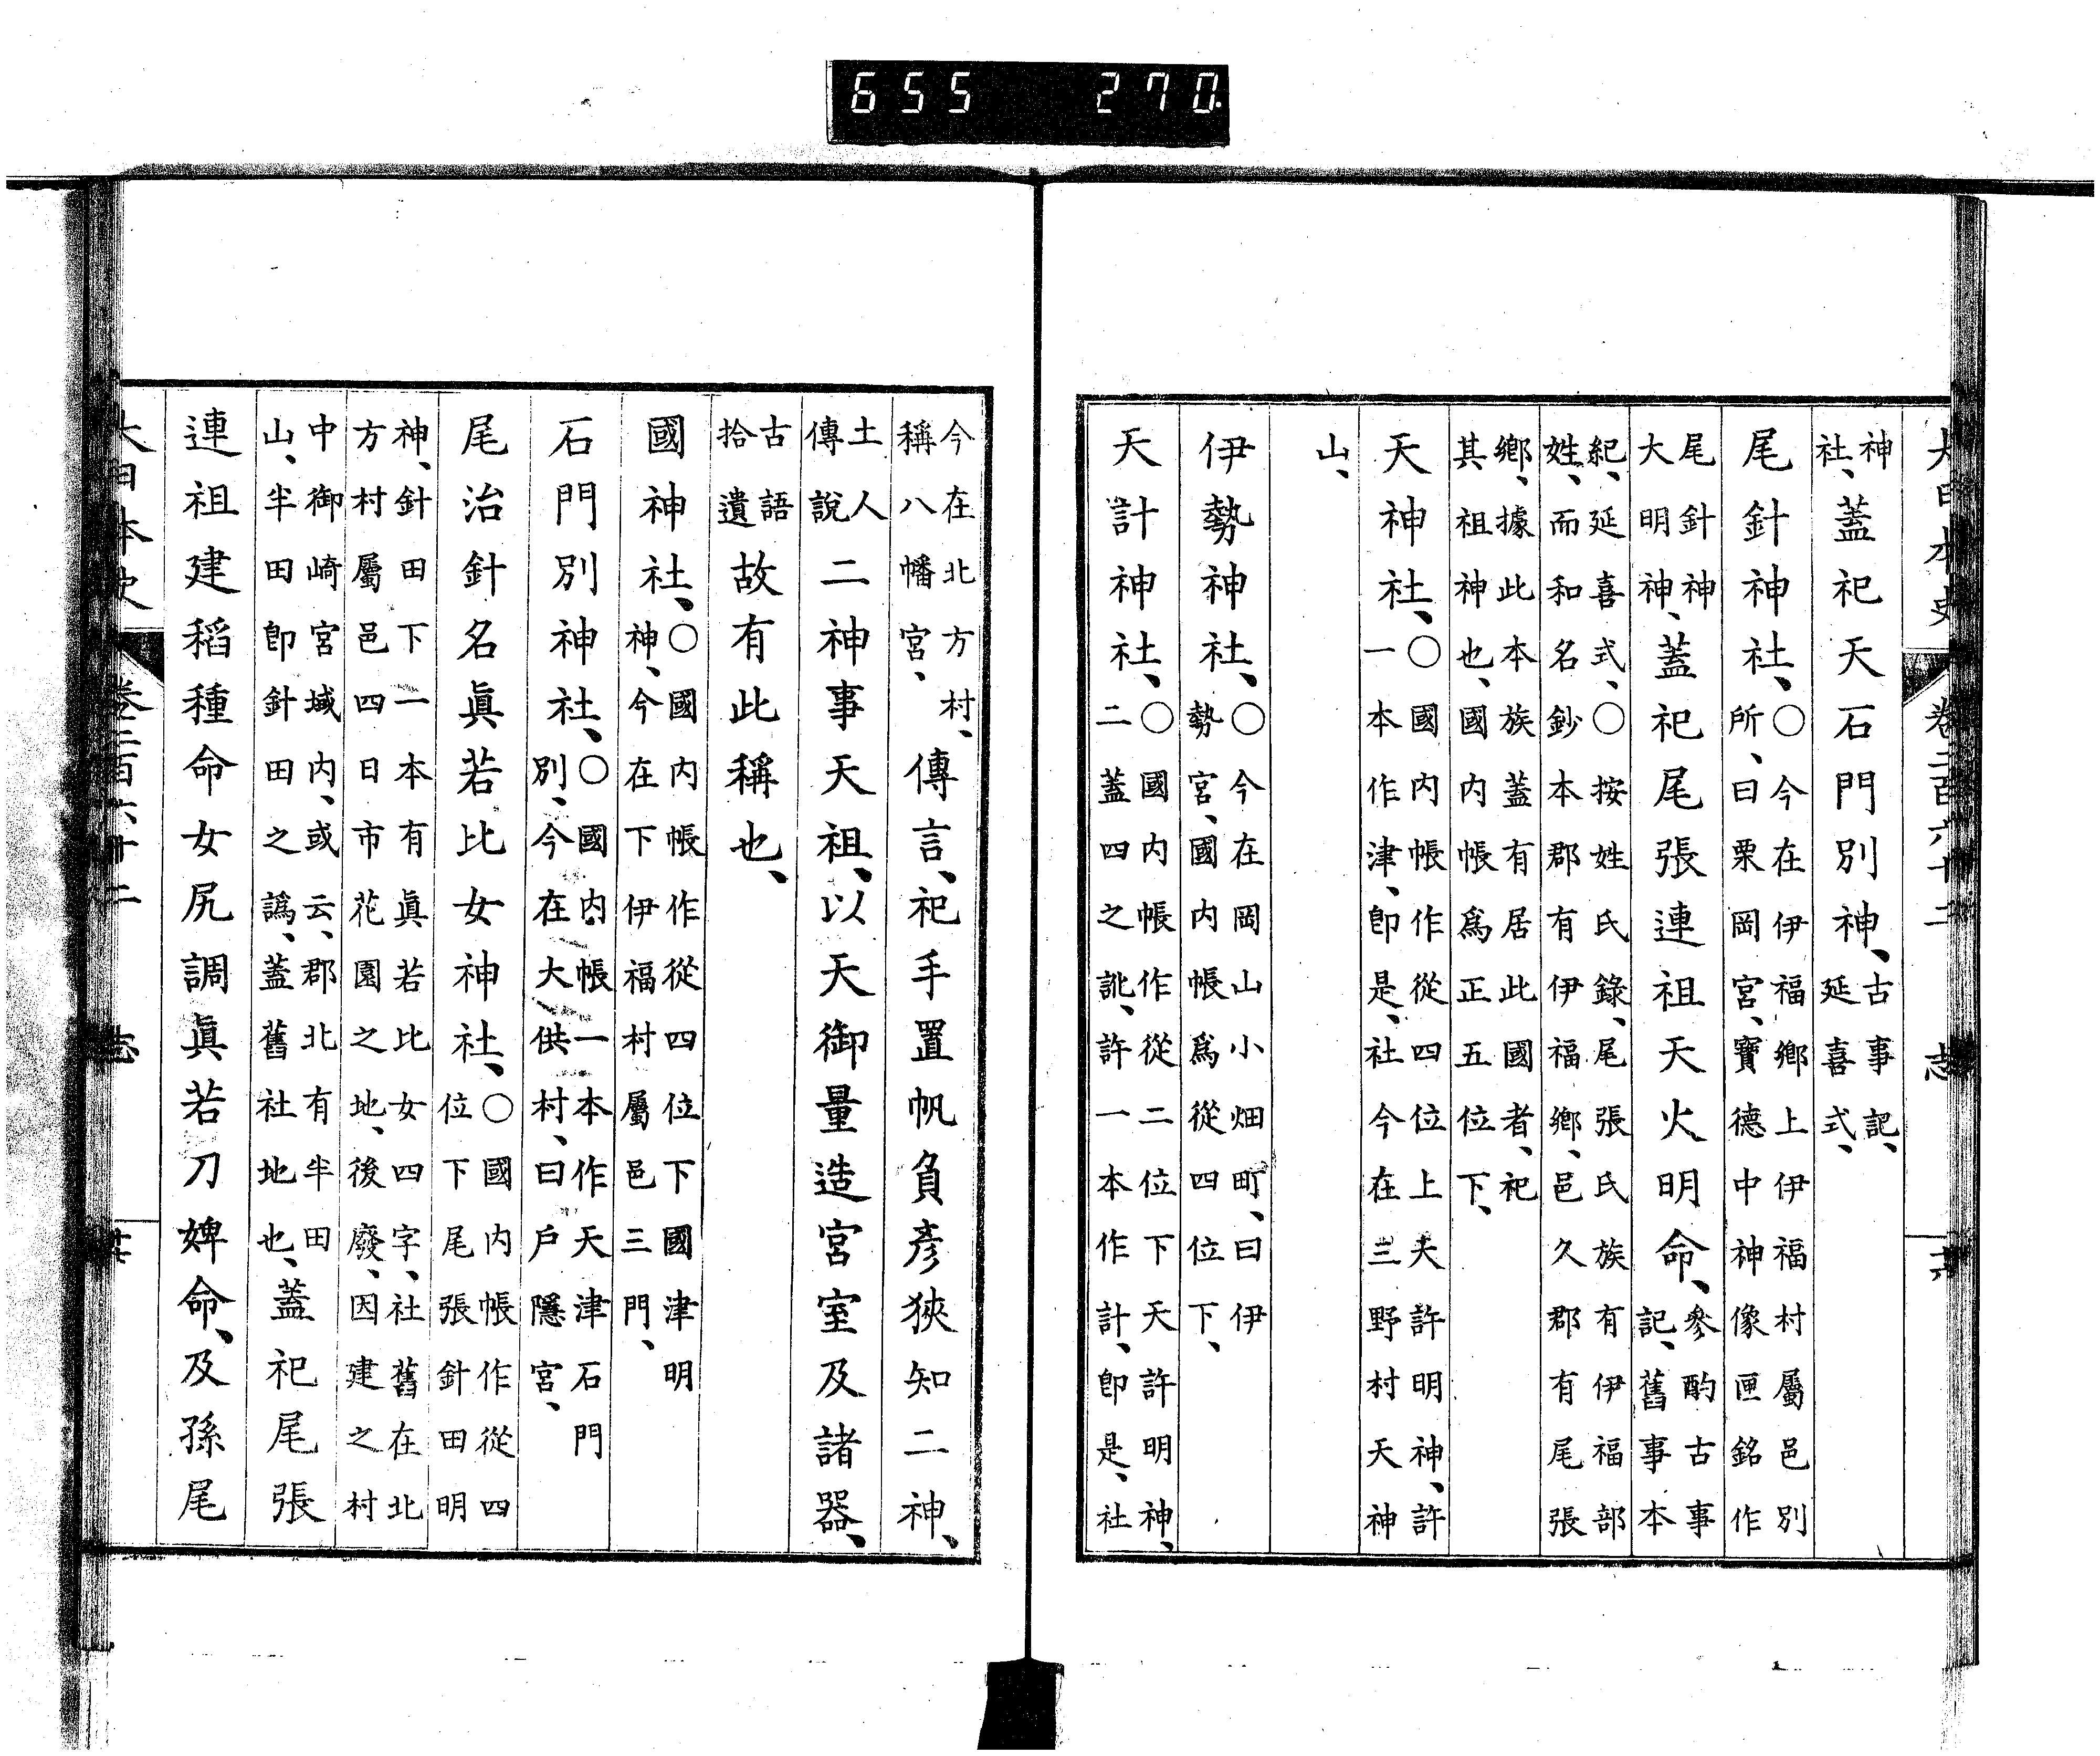 大日本史 卷二百六十二 志
神社、蓋祀天石門別神、古事記、延喜式、
尾針神社、○今在伊福鄉上伊福村屬邑別所、曰栗岡宮、寶德中神像匣銘作
尾針神大明神、蓋祀尾張連祖天火明命、參酌古事記、舊事本
紀、延喜式、○按姓氏錄、尾張氏族有伊福部姓、而和名鈔本郡有伊福鄉、邑久郡有尾張
鄉、據此本族蓋有居此國者、祀其祖神也、國内帳爲正五位下、
天神社、○國内帳作從四位上天許明神、許一本作津、卽是、社今在三野村天神
山、
伊勢神社、○今在岡山小畑町、曰伊勢宮、國内帳爲從四位下、
天計神社、○國内帳作從二位下天許明神、二蓋四之訛、許一本作計、卽是、社
今在北方村、稱八幡宮、傳言、祀手置帆負彥狹知二神、
土人傳說二神事天祖、以天御量造宮室及諸器、
古語拾遺故有此稱也、
國神社、○國内帳作從四位下國津明神、今在下伊福村屬邑三門、
石門別神社、○國内帳一本作天津石門別、今在大供村、曰戶隱宮、
尾治針名眞若比女神社、○國内帳作從四位下尾張針田明
神、針田下一本有眞若比女四字、社舊在北方村屬邑四日市花園之地、後廢、因建之村
中御崎宮域内、或云、郡北有半田山、半田卽針田之譌、蓋舊社地也、蓋祀尾張
連祖建稻種命女尻調眞若刀婢命、及孫尾
大日本史 卷二百六十二 志
655 270